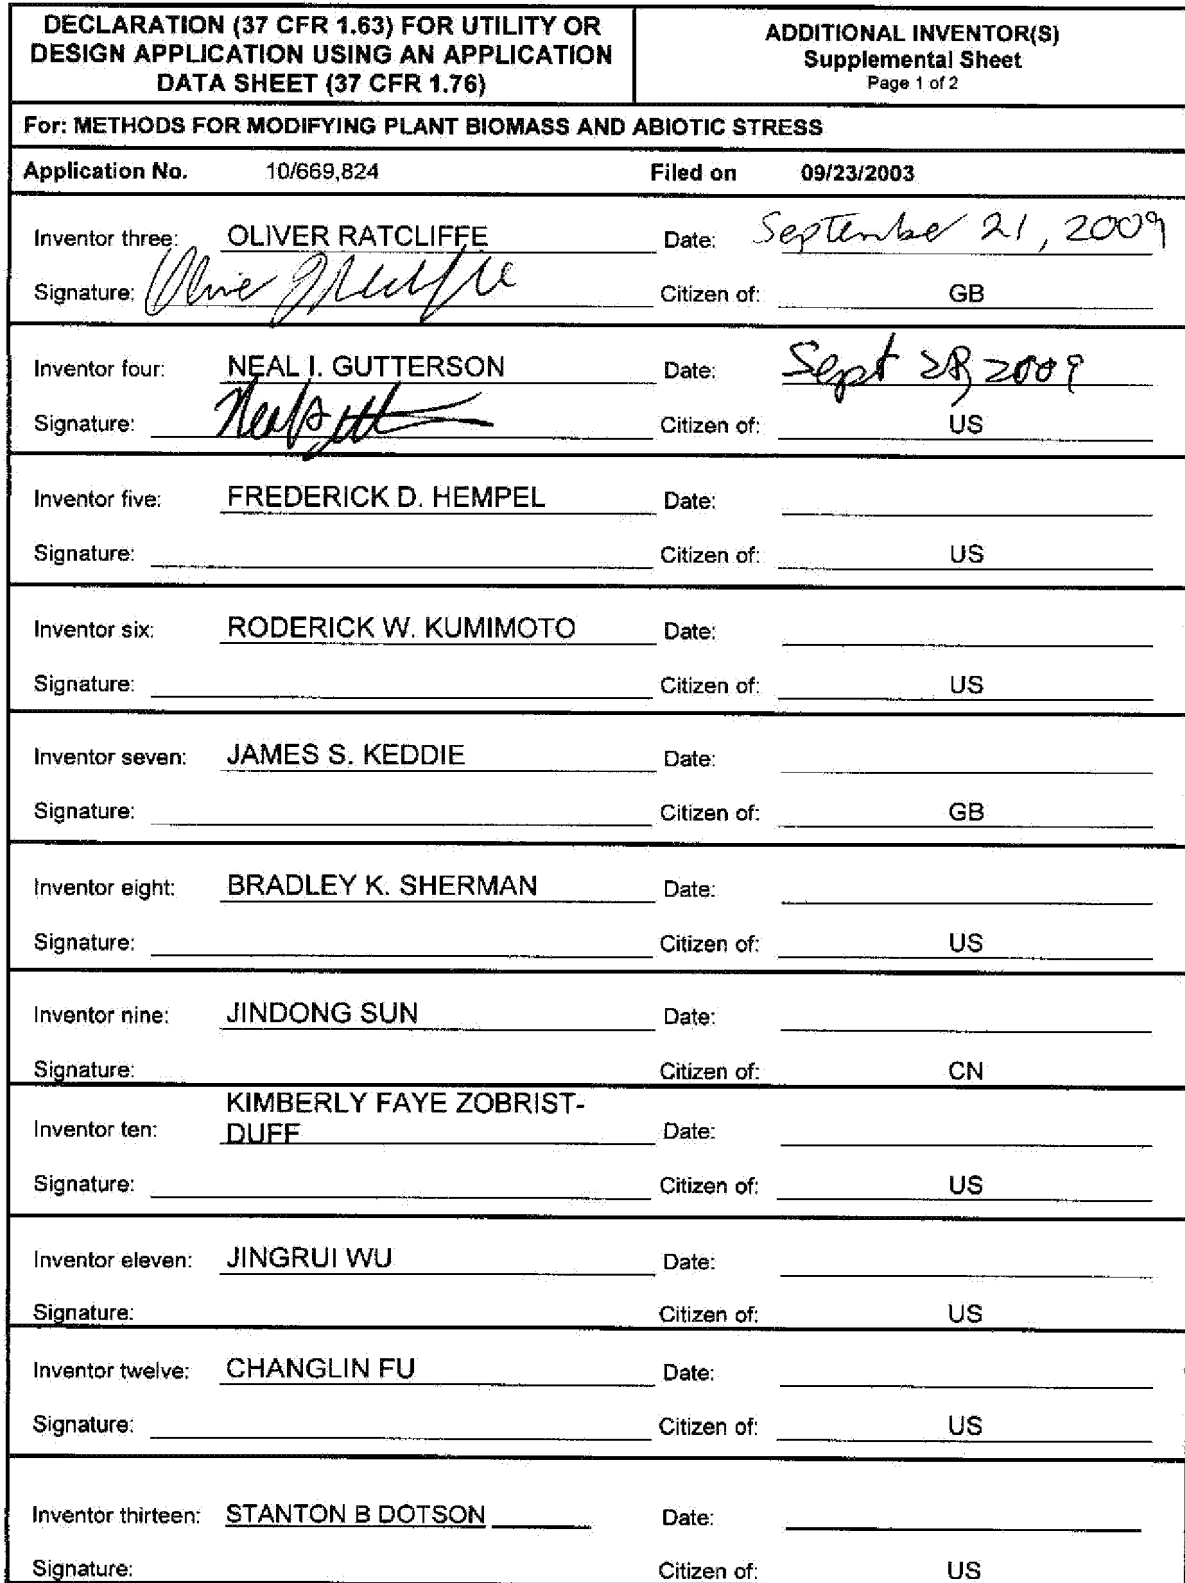 DECLARATION (37 CFR 1.63) FOR UTILITY OR
DESIGN APPLICATION USING AN APPLICATION
DATA SHEET (37 CFR 1.76)
ADDITIONAL INVENTOR(S)
Supplemental Sheet
Page 1 of 2
For: METHODS FOR MODIFYING PLANT BIOMASS AND ABIOTIC STRESS
Application No. 10/669,824 Filed on 09/23/2003
Inventor three: OLIVER RATCLIFFE Date: September 21, 2009
Signature: Citizen of: GB
Inventor four: NEAL I. GUTTERSON Date: Sept 28, 2009
Signature: Citizen of: US
Inventor five: FREDERICK D. HEMPEL Date:
Signature: Citizen of: US
Inventor six: RODERICK W. KUMIMOTO Date:
Signature: Citizen of: US
Inventor seven: JAMES S. KEDDIE Date:
Signature: Citizen of: GB
Inventor eight: BRADLEY K. SHERMAN Date:
Signature: Citizen of: US
Inventor nine: JINDONG SUN Date:
Signature: Citizen of: CN
KIMBERLY FAYE ZOBRIST-
Inventor ten: DUFF Date:
Signature: Citizen of: US
Inventor eleven: JINGRUI WU Date:
Signature: Citizen of: US
Inventor twelve: CHANGLIN FU Date:
Signature: Citizen of: US
Inventor thirteen: STANTON B DOTSON Date:
Signature: Citizen of: US